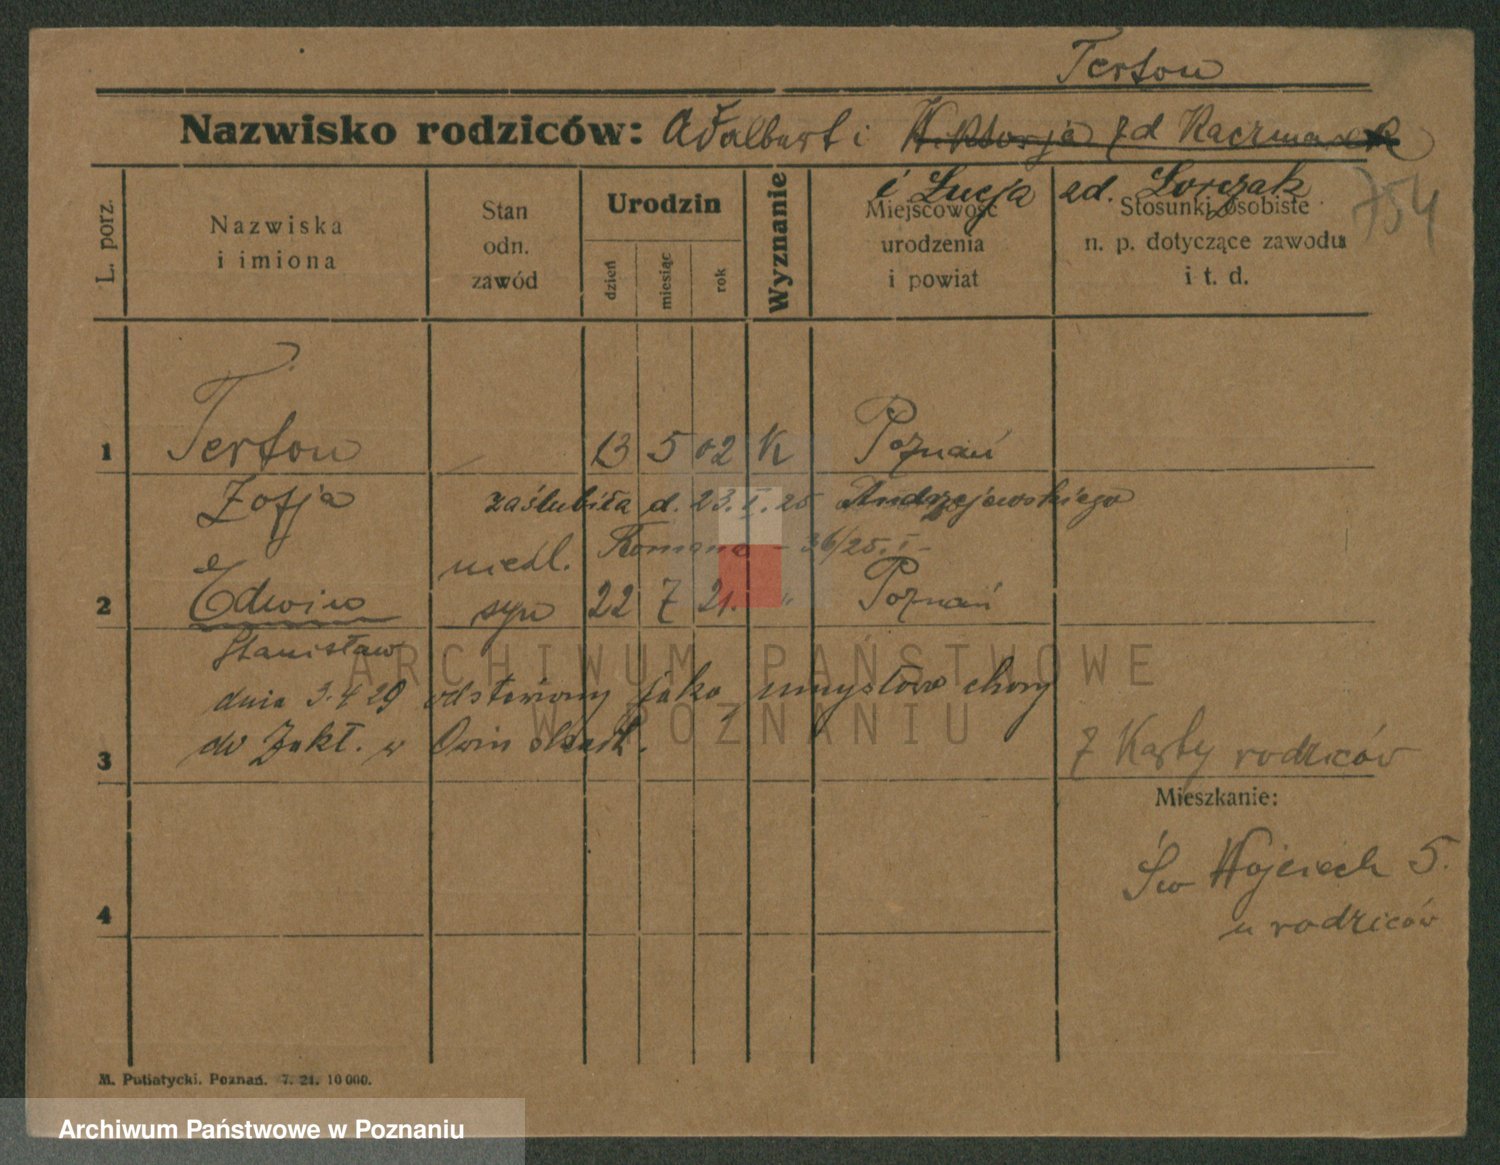 Terton
Nazwisko rodziców: Adalbert i Wiktorja z d Kaczmarek
i Łucja zd. Lorczak
754
L. porz.
Nazwiska
i imiona
Stan
odn.
zawód
Urodzin
dzień
miesiąc
rok
Wyznanie
Miejscowość
urodzenia
i powiat
Stosunki osobiste
n. p. dotyczące zawodu
i t. d.
1 Terton 13 5 02 K Poznań
Zofja zaślubiła d. 23.I.25 Andrzejewskiego
Romana - 36/25.I-
2 Edwin nieśl. syn 22 7 21. " Poznań
Stanisław
dnia 3.4 29 odstawiony jako umysłowo chory
3 do Zakł. w Owinskach.
z Karty rodziców
Mieszkanie:
Św Wojciech 5.
u rodziców
4
M. Putiatycki. Poznań. 7. 21. 10 000.
ARCHIWUM PAŃSTWOWE
W POZNANIU
Archiwum Państwowe w Poznaniu